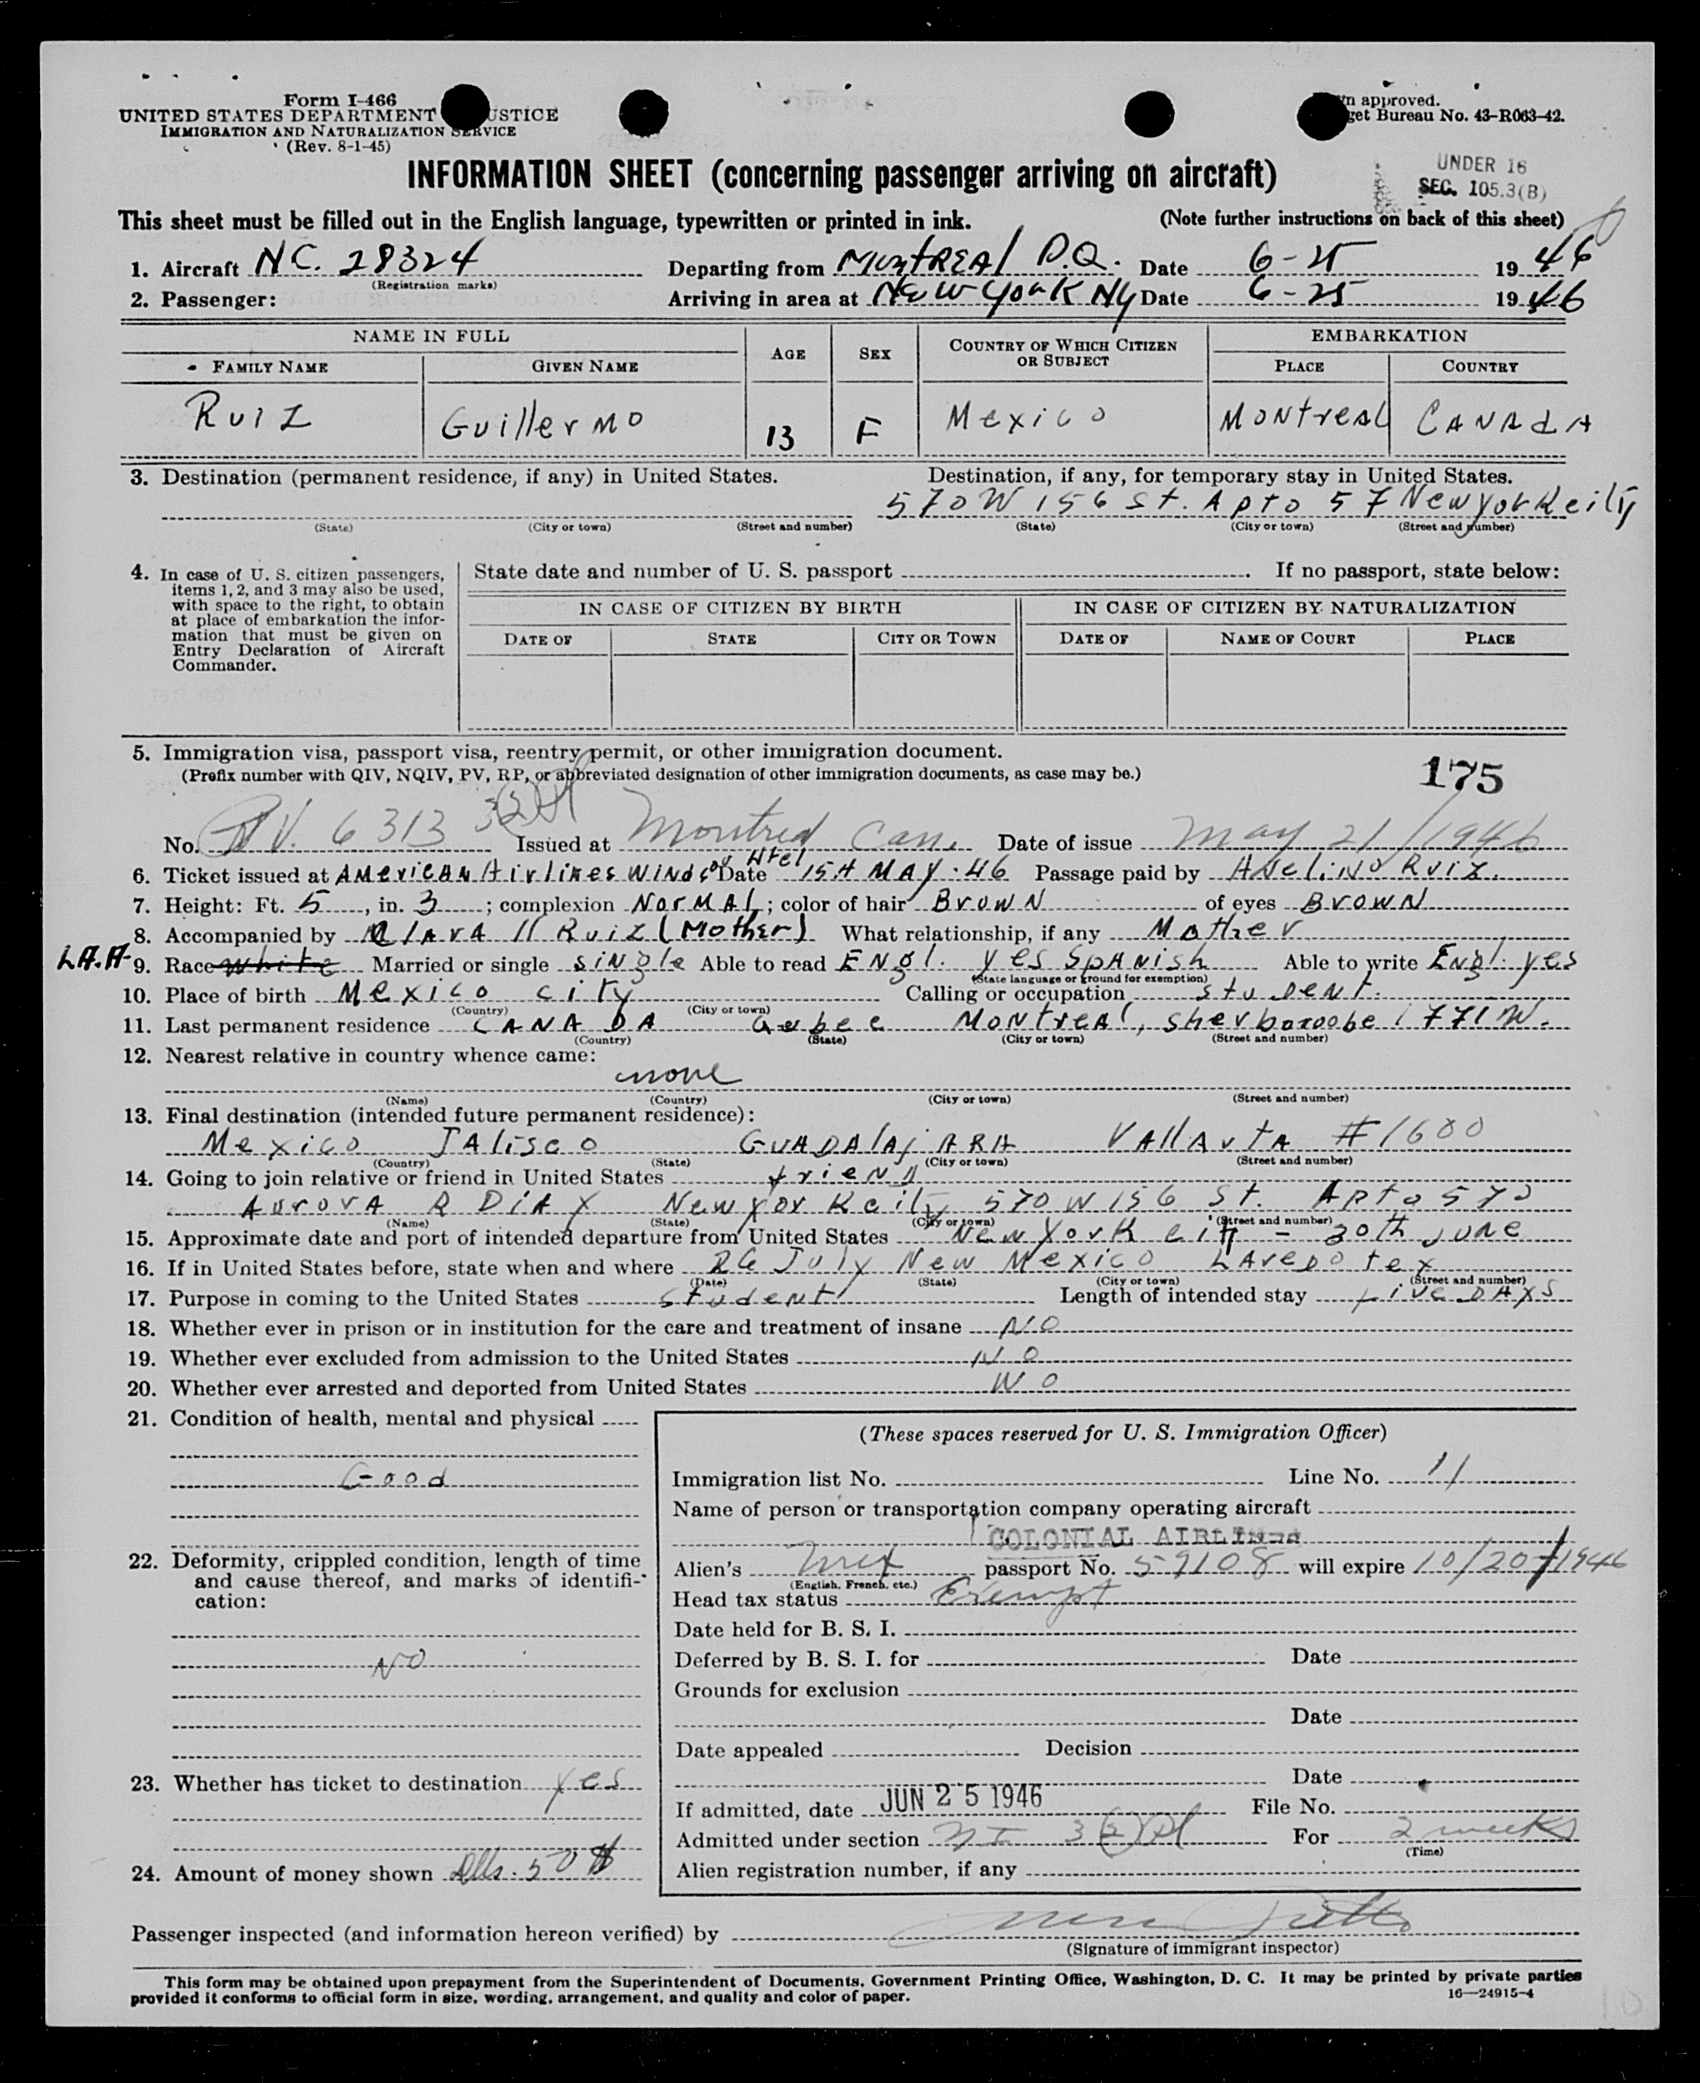 Form I-466
UNITED STATES DEPARTMENT USTICE
IMMIGRATION AND NATURALIZATION SERVICE
(Rev. 8-1-45)
n approved.
get Bureau No. 43-R063-42.
INFORMATION SHEET (concerning passenger arriving on aircraft)
UNDER 16
SEC. 105.3(B)
This sheet must be filled out in the English language, typewritten or printed in ink.
(Note further instructions on back of this sheet)
1. Aircraft NC. 28324 Departing from MontREAl P.Q. Date 6-25 1946
(Registration marks)
2. Passenger: Arriving in area at New York NY Date 6-25 1946
NAME IN FULL AGE SEX COUNTRY OF WHICH CITIZEN OR SUBJECT EMBARKATION
FAMILY NAME GIVEN NAME PLACE COUNTRY
Ruiz Guillermo 13 F Mexico Montreal CANADA
3. Destination (permanent residence, if any) in United States. Destination, if any, for temporary stay in United States.
570 W 156 St. Apto 57 New york city
(State) (City or town) (Street and number) (State) (City or town) (Street and number)
4. In case of U. S. citizen passengers, items 1, 2, and 3 may also be used, with space to the right, to obtain at place of embarkation the information that must be given on Entry Declaration of Aircraft Commander.
State date and number of U. S. passport . If no passport, state below:
IN CASE OF CITIZEN BY BIRTH IN CASE OF CITIZEN BY NATURALIZATION
DATE OF STATE CITY OR TOWN DATE OF NAME OF COURT PLACE
5. Immigration visa, passport visa, reentry permit, or other immigration document.
(Prefix number with QIV, NQIV, PV, RP, or abbreviated designation of other immigration documents, as case may be.)
175
No. PV. 6313 3(2) Issued at Montreal Can. Date of issue May 21/1946
6. Ticket issued at AMericAN Airlines Windsor Htel Date 15H MAy. 46 Passage paid by Ruiz.
7. Height: Ft. 5, in. 3; complexion NorMAL; color of hair BrowN of eyes BrowN
8. Accompanied by Clara ll Ruiz (Mother) What relationship, if any Mother
LA.A 9. Race white Married or single single Able to read Engl. yes SpANish Able to write Engl. yes
(State language or ground for exemption)
10. Place of birth Mexico city Calling or occupation student.
(Country) (City or town)
11. Last permanent residence CANADA Quebec MontreAl, 1771 W.
(Country) (State) (City or town) (Street and number)
12. Nearest relative in country whence came:
none
(Name) (Country) (City or town) (Street and number)
13. Final destination (intended future permanent residence):
Mexico JAlisco GuADAlajARA VAllArtA #1600
(Country) (State) (City or town) (Street and number)
14. Going to join relative or friend in United States frieND
Aurora R DiAz New york city 570 W 156 St. Apto
(Name) (State) (City or town) (Street and number)
15. Approximate date and port of intended departure from United States New York city - 30th June
16. If in United States before, state when and where 26 July New Mexico LAreDo tex
(Date) (State) (City or town) (Street and number)
17. Purpose in coming to the United States student Length of intended stay five DAys
18. Whether ever in prison or in institution for the care and treatment of insane No
19. Whether ever excluded from admission to the United States No
20. Whether ever arrested and deported from United States No
21. Condition of health, mental and physical
Good
22. Deformity, crippled condition, length of time and cause thereof, and marks of identification:
No
23. Whether has ticket to destination yes
24. Amount of money shown Dlls. 50 $
(These spaces reserved for U. S. Immigration Officer)
Immigration list No. Line No. 11
Name of person or transportation company operating aircraft
COLONIAL AIRLINES
Alien's Mex passport No. 59108 will expire 10/20/1946
(English, French, etc.)
Head tax status Exempt
Date held for B. S. I.
Deferred by B. S. I. for Date
Grounds for exclusion
Date
Date appealed Decision
Date
If admitted, date JUN 25 1946 File No.
Admitted under section 3(2) For 2 weeks
(Time)
Alien registration number, if any
Passenger inspected (and information hereon verified) by
(Signature of immigrant inspector)
This form may be obtained upon prepayment from the Superintendent of Documents, Government Printing Office, Washington, D. C. It may be printed by private parties
provided it conforms to official form in size, wording, arrangement, and quality and color of paper.
16—24915-4